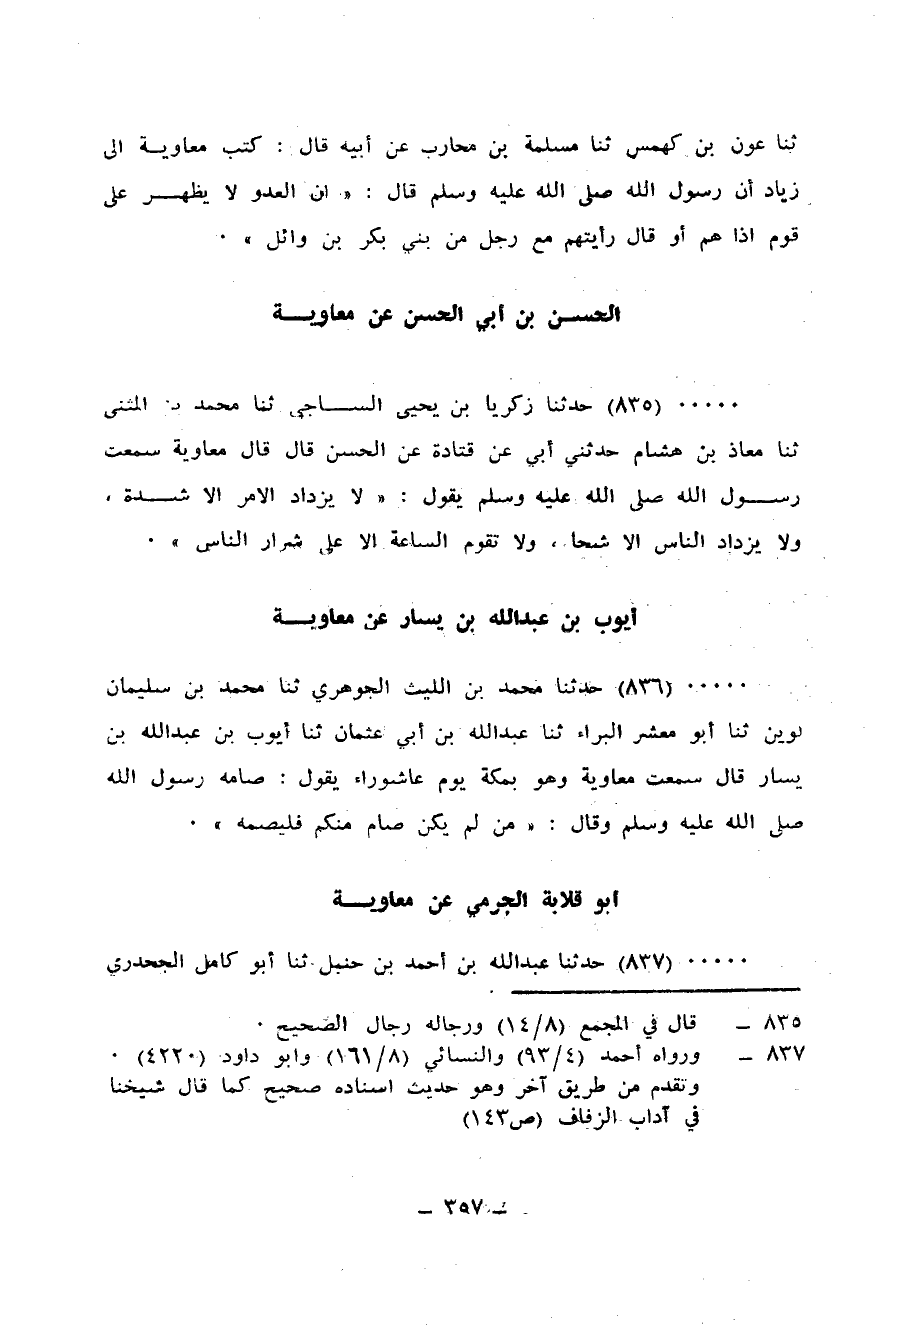 ثنا عون بن كهمس ثنا مسلمة بن محارب عن أبيه قال : كتب معاويــة الى
زياد أن رسول الله صلى الله عليه وسلم قال : « ان العدو لا يظهــر على
قوم اذا هم أو قال رأيتهم مع رجل من بني بكر بن وائل » ٠
الحســن بن أبي الحسن عن معاويــة
٠٠٠٠٠ (٨٣٥) حدثنا زكريا بن يحيى الســاجي ثنا محمد بن المثنى
ثنا معاذ بن هشام حدثني أبي عن قتادة عن الحسن قال قال معاوية سمعت
رســول الله صلى الله عليه وسلم يقول : « لا يزداد الامر الا شــدة ،
ولا يزداد الناس الا شحا ، ولا تقوم الساعة الا على شرار الناس » ٠
أيوب بن عبدالله بن يسار عن معاويــة
٠٠٠٠٠ (٨٣٦) حدثنا محمد بن الليث الجوهري ثنا محمد بن سليمان
لوين ثنا أبو معشر البراء ثنا عبدالله بن أبي عثمان ثنا أيوب بن عبدالله بن
يسار قال سمعت معاوية وهو بمكة يوم عاشوراء يقول : صامه رسول الله
صلى الله عليه وسلم وقال : « من لم يكن صام منكم فليصمه » ٠
أبو قلابة الجرمي عن معاويــة
٠٠٠٠٠ (٨٣٧) حدثنا عبدالله بن أحمد بن حنبل ثنا أبو كامل الجحدري
٨٣٥ – قال في المجمع (١٤/٨) ورجاله رجال الصحيح ٠
٨٣٧ – ورواه أحمد (٩٣/٤) والنسائي (١٦١/٨) وابو داود (٤٢٢٠) ٠
وتقدم من طريق آخر وهو حديث اسناده صحيح كما قال شيخنا
في آداب الزفاف (ص١٤٣)
– ٣٥٧ –